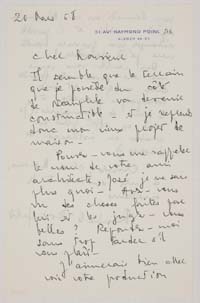 20 Mars 68
Cher Monsieur
Il semble que le terrain
que je possède du côté
de va devenir
constructible - et je reprends
donc mon vieux projet de
maison -
Pouvez-vous me rappeler
le nom de votre ami
architecte, José, je ne sais
plus quoi - Avez-vous
vu des choses faites par
lui et les jugez-vous
belles ? Répondez-moi
sans trop tarder s'il
vous plaît -
J'aimerais bien aller
voir votre production